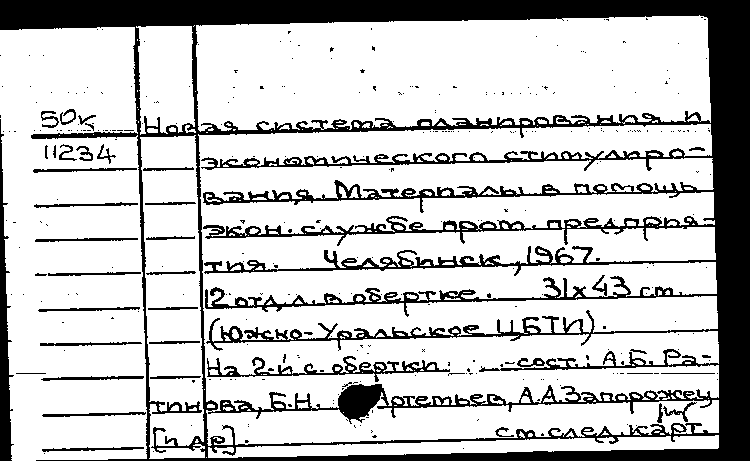 50к Новая система планирования и
11234 экономического стимулиро-
вания. Материалы в помощь
экон. службе пром. предприя-
тия. Челябинск, 1967.
12 отд. л. в обертке. 31x43 см.
(Южно-Уральское ЦБТИ).
На 2-й с. обертки: сост.: А.Б. Ра-
тинова, Б.Н. Артемьев, А.А. Запорожец
[и др].
см. след. карт.